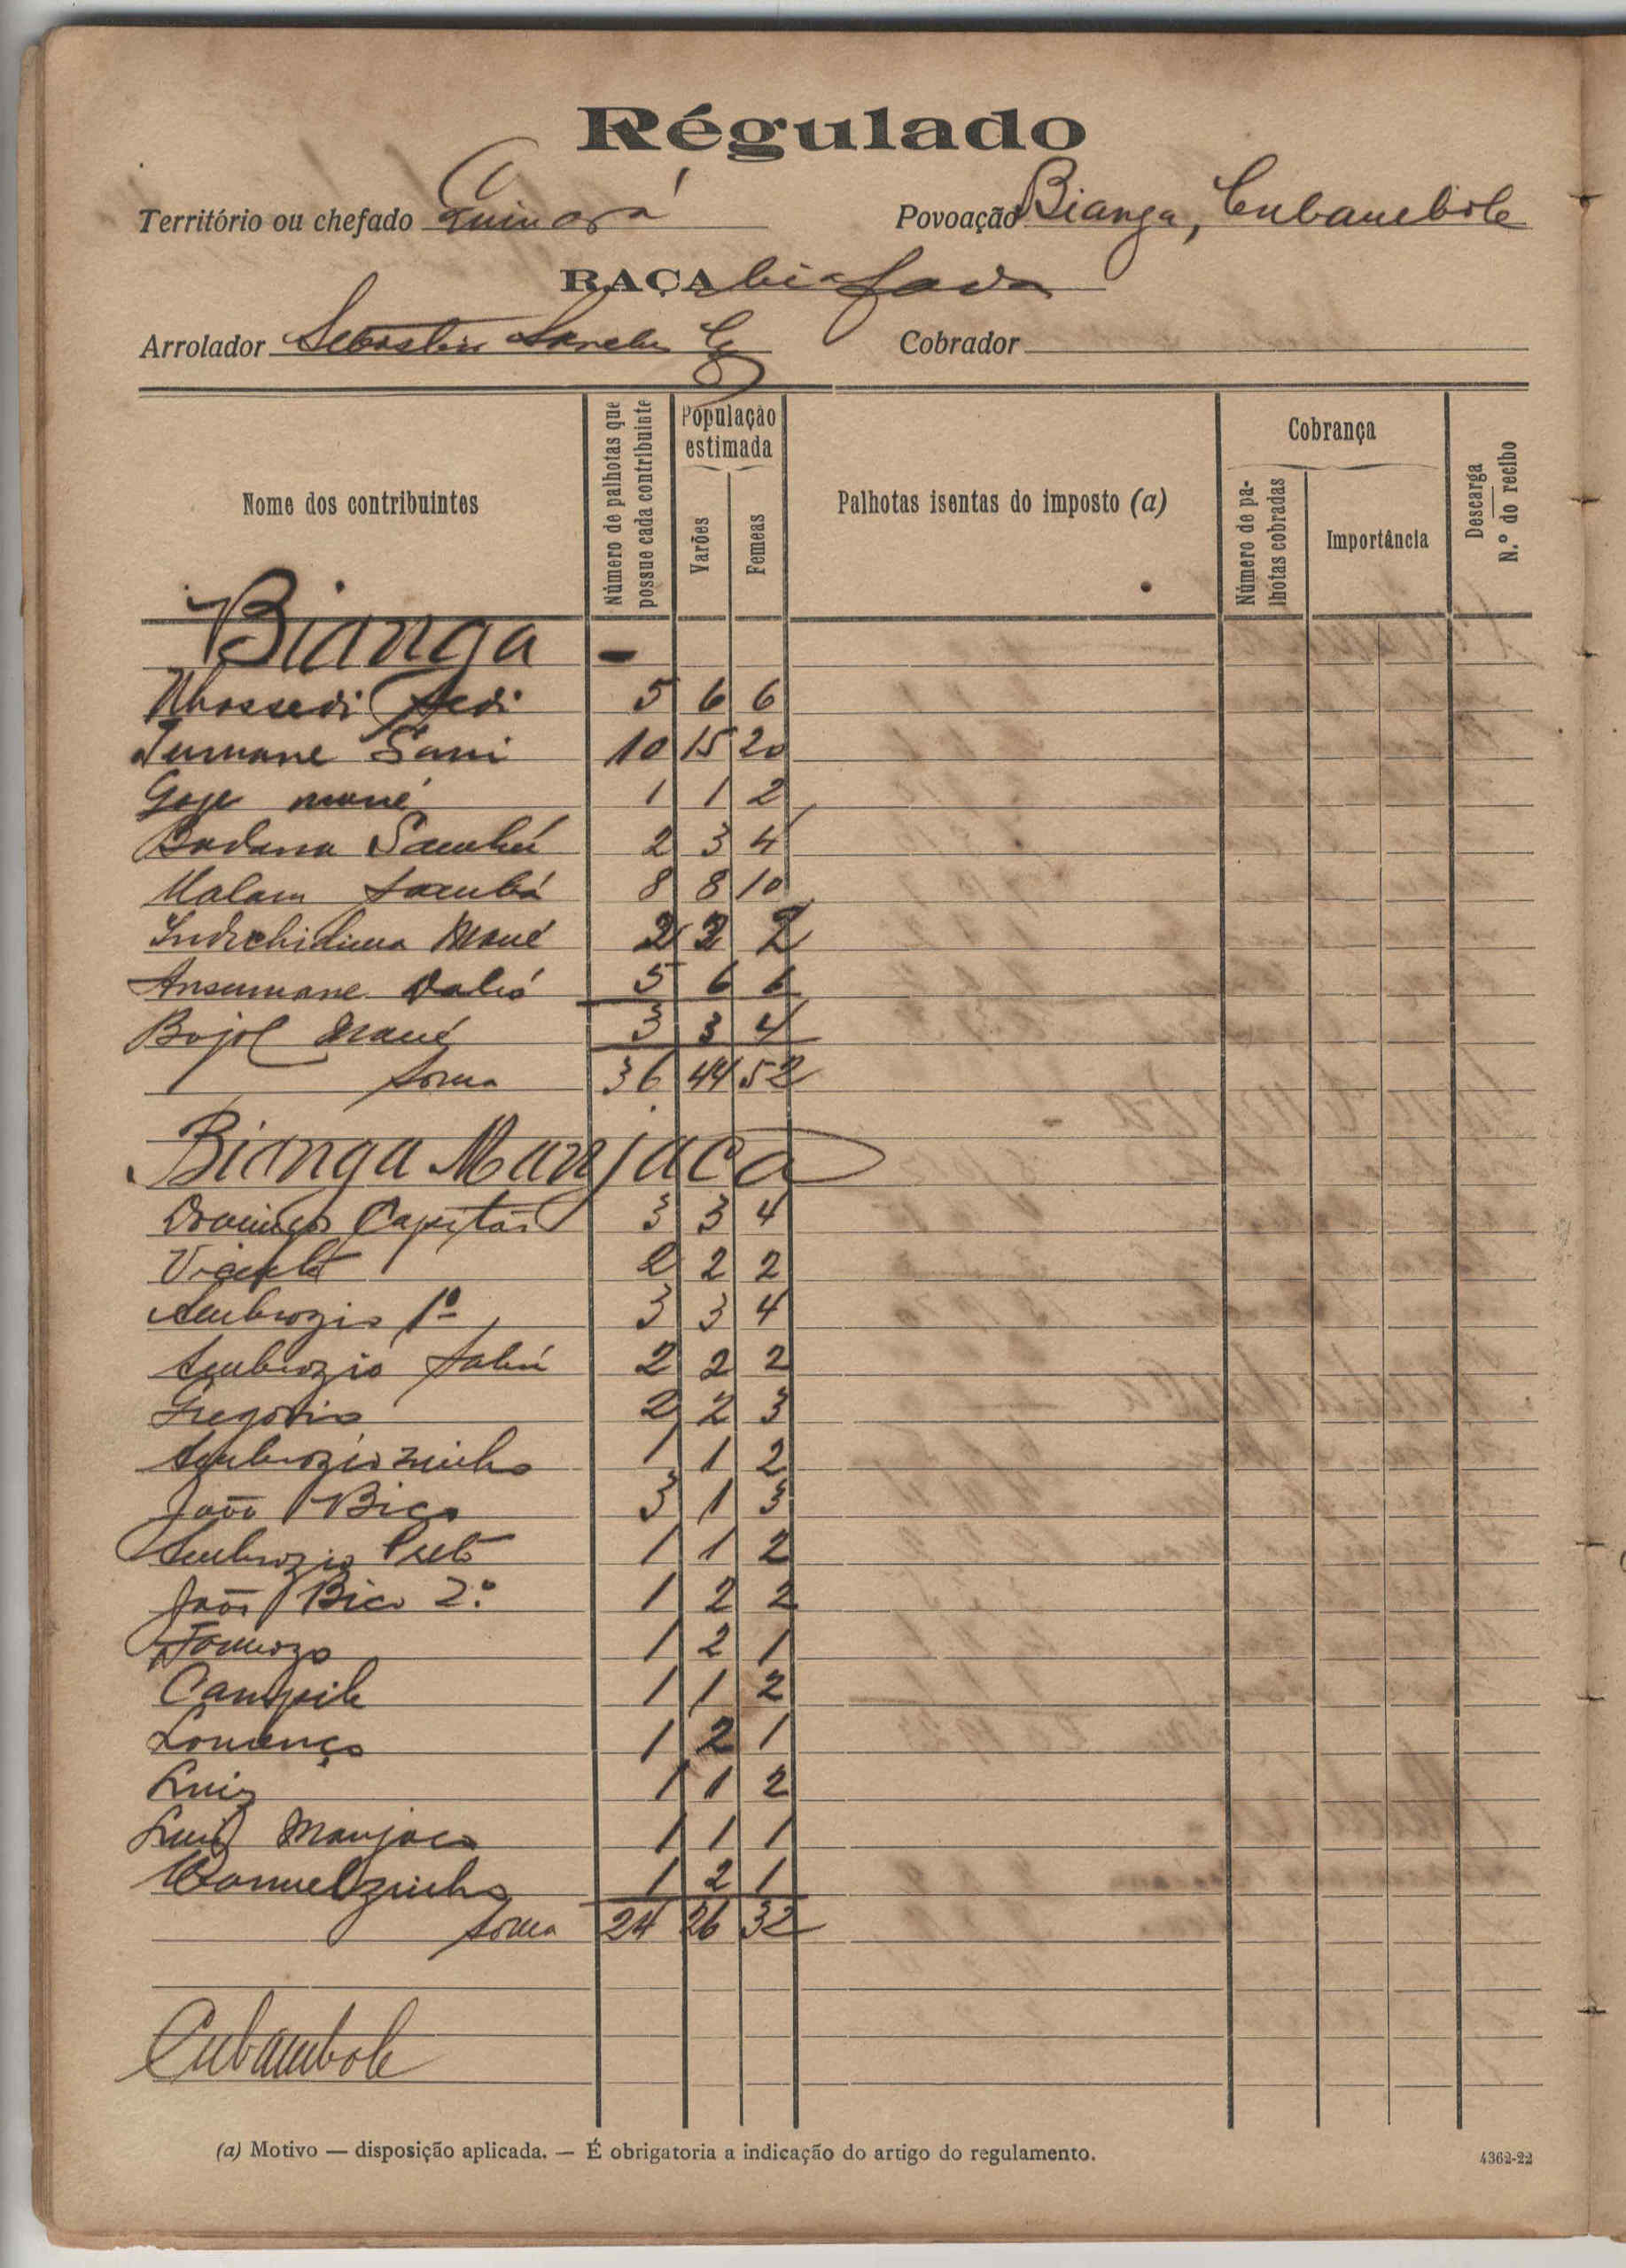 Régulado
Território ou chefado Quinará Povoação Bianga, Cubambole
RAÇA biafada
Arrolador Cobrador
Nome dos contribuintes
Número de palhotas que possue cada contribuinte
População estimada
Varões
Femeas
Palhotas isentas do imposto (a)
Cobrança
Número de palhotas cobradas
Importância
Descarga
N.º do recibo
Bianga -
5 6 6
Turmane Sani 10 15 20
mané 1 1 2
2 3 4
Malam 8 8 10
Mané 2 2 2
Ansumane 5 6 6
Bojol Mané 3 3 4
Soma 36 44 52
Bianga Manjaca
Domingos Capitão 3 3 4
Vicente 2 2 2
Ambrozio 1º 3 3 4
Ambrozio 2 2 2
Gregorio 2 2 3
Ambroziozinho 1 1 2
João Bico 3 1 3
Ambrozio Preto 1 1 2
João Bico 2.º 1 2 2
1 2 1
Campile 1 1 2
Lourenço 1 2 1
Luiz 1 1 2
Luiz Manjaco 1 1 1
Manuelzinho 1 2 1
Soma 24 26 32
Cubambole
(a) Motivo — disposição aplicada. — É obrigatoria a indicação do artigo do regulamento.
4362-22